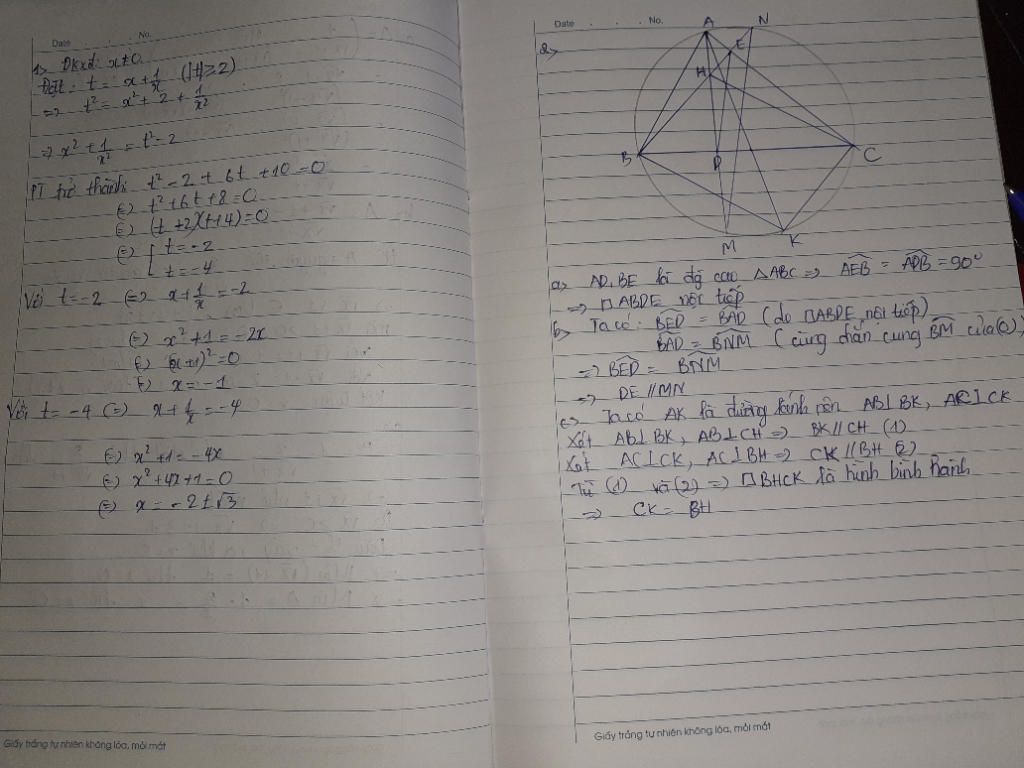 Date . . . No.
1> Đkxđ: x ≠ 0
Đặt: t = x + 1/x (|t| ≥ 2)
=> t² = x² + 2 + 1/x²
=> x² + 1/x² = t² - 2
PT trở thành: t² - 2 + 6t + 10 = 0
(=) t² + 6t + 8 = 0
(=) (t + 2)(t + 4) = 0
(=) [ t = -2
t = -4
Với t = -2 (=) x + 1/x = -2
(=) x² + 1 = -2x
(=) (x + 1)² = 0
(=) x = -1
Với t = -4 (=) x + 1/x = -4
(=) x² + 1 = -4x
(=) x² + 4x + 1 = 0
(=) x = -2 ± √3
Giấy trắng tự nhiên không lóa, mỏi mắt
Date . . . No.
2>
A N
E
H
B D C
M K
a> AD, BE là độ cao △ABC => AEB = ADB = 90°
=> □ABDE nội tiếp
b> Ta có: BED = BAD (do □ABDE nội tiếp)
BAD = BNM (cùng chắn cung BM của (O))
=> BED = BNM
=> DE // MN
c> Ta có AK là đường kính nên AB⊥BK, AC⊥CK
Xét AB⊥BK, AB⊥CH => BK // CH (1)
Xét AC⊥CK, AC⊥BH => CK // BH (2)
Từ (1) và (2) => □BHCK là hình bình hành
=> CK = BH
Giấy trắng tự nhiên không lóa, mỏi mắt